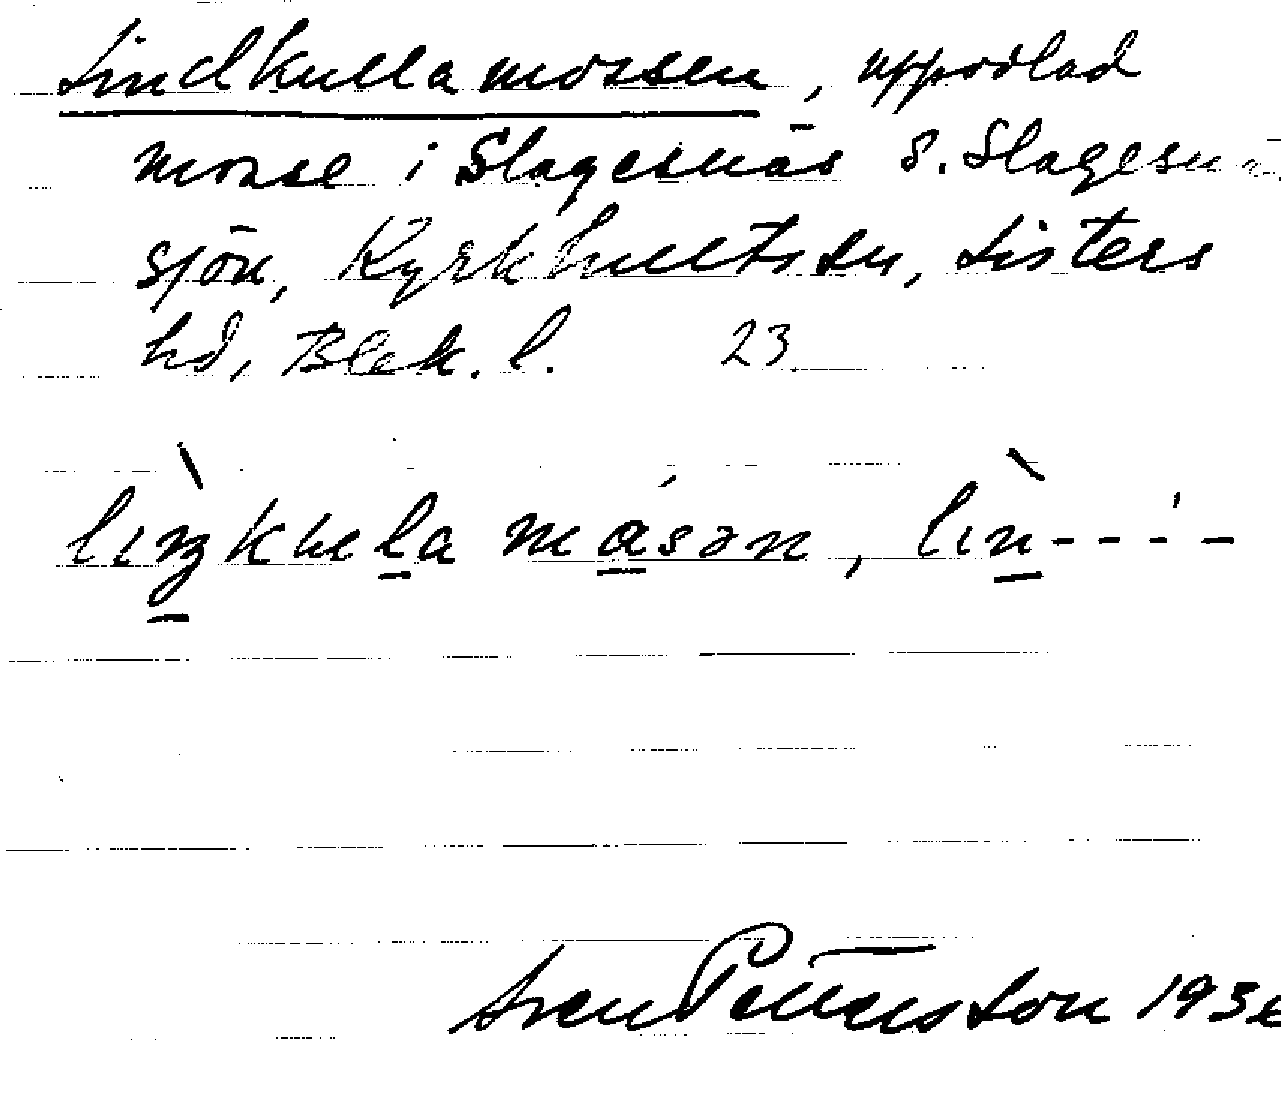 Lindkullamossen, uppodlad
mosse i Slagesnäs s. Slagesnä
sjön, Kyrkhults sn, Listers
hd, Blek. l. 23.
lìŋkhula másən, lìn----
Sven Pettersson 193